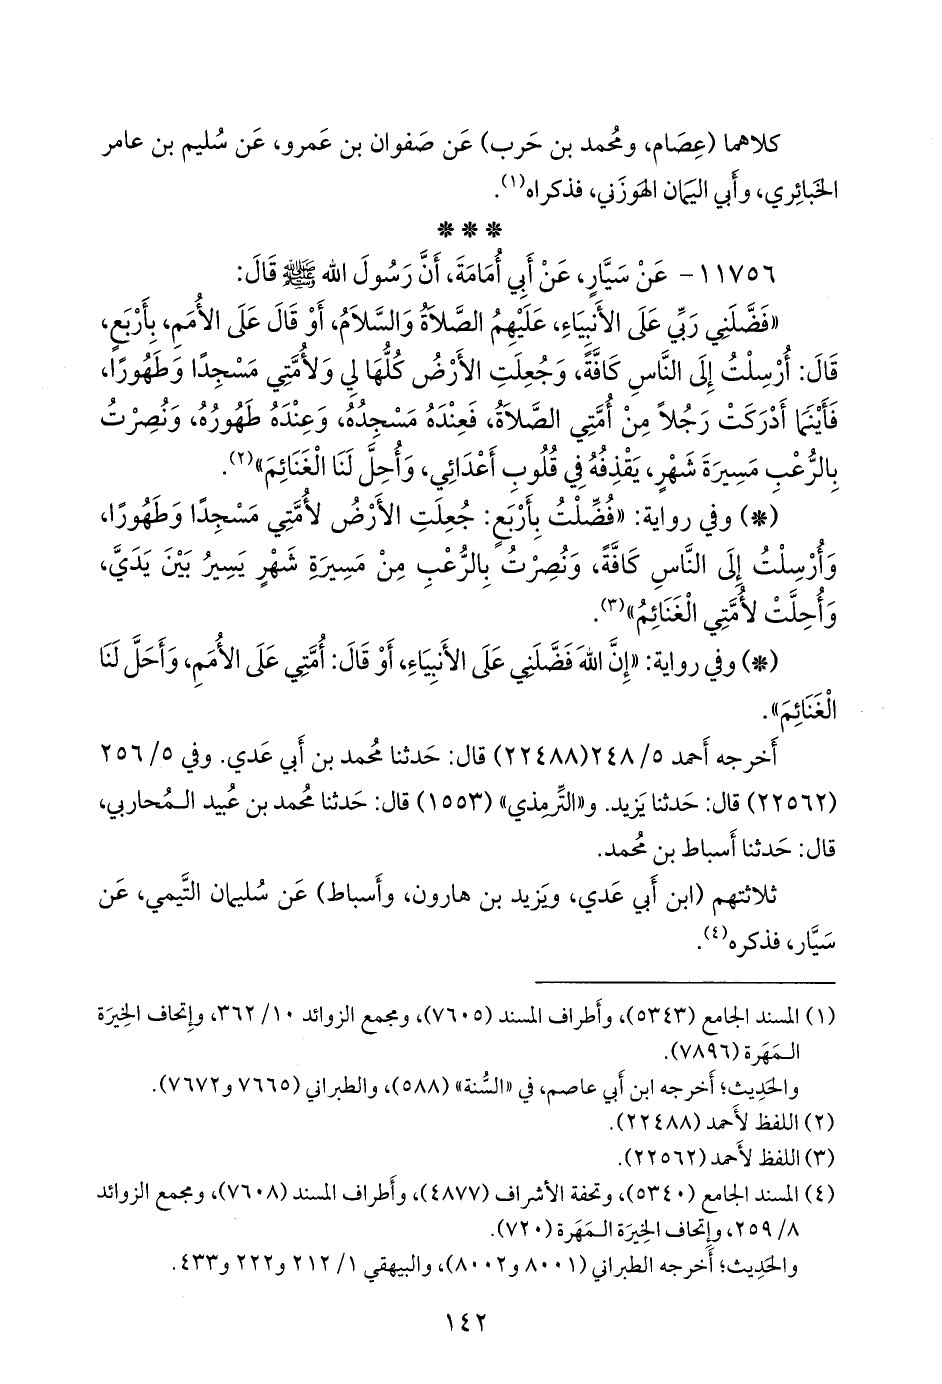 كلاهما (عِصَام، ومُحمد بن حَرب) عَن صَفوان بن عَمرو، عَن سُليم بن عامر
الخَبائِري، وأَبي اليَمان الهَوزَني، فذكراه(١).
* * *
١١٧٥٦ - عَنْ سَيَّارٍ، عَنْ أَبِي أُمَامَةَ، أَنَّ رَسُولَ الله ﷺ قَالَ:
«فَضَّلَنِي رَبِّي عَلَى الأَنْبِيَاءِ، عَلَيْهِمُ الصَّلاَةُ وَالسَّلاَمُ، أَوْ قَالَ عَلَى الأُمَمِ، بِأَرْبَعٍ،
قَالَ: أُرْسِلْتُ إِلَى النَّاسِ كَافَّةً، وَجُعِلَتِ الأَرْضُ كُلُّهَا لِي وَلأُمَّتِي مَسْجِدًا وَطَهُورًا،
فَأَيْنَمَا أَدْرَكَتْ رَجُلاً مِنْ أُمَّتِي الصَّلاَةُ، فَعِنْدَهُ مَسْجِدُهُ، وَعِنْدَهُ طَهُورُهُ، وَنُصِرْتُ
بِالرُّعْبِ مَسِيرَةَ شَهْرٍ، يَقْذِفُهُ فِي قُلُوبِ أَعْدَائِي، وَأَحَلَّ لَنَا الْغَنَائِمَ»(٢).
(*) وفي رواية: «فُضِّلْتُ بِأَرْبَعٍ: جُعِلَتِ الأَرْضُ لأُمَّتِي مَسْجِدًا وَطَهُورًا،
وَأُرْسِلْتُ إِلَى النَّاسِ كَافَّةً، وَنُصِرْتُ بِالرُّعْبِ مِنْ مَسِيرَةِ شَهْرٍ يَسِيرُ بَيْنَ يَدَيَّ،
وَأُحِلَّتْ لأُمَّتِي الْغَنَائِمُ»(٣).
(*) وفي رواية: «إِنَّ اللهَ فَضَّلَنِي عَلَى الأَنْبِيَاءِ، أَوْ قَالَ: أُمَّتِي عَلَى الأُمَمِ، وَأَحَلَّ لَنَا
الْغَنَائِمَ».
أَخرجه أَحمد ٥/ ٢٤٨(٢٢٤٨٨) قال: حَدثنا مُحمد بن أَبي عَدي. وفي ٥/ ٢٥٦
(٢٢٥٦٢) قال: حَدثنا يَزيد. و«التِّرمِذي» (١٥٥٣) قال: حَدثنا مُحمد بن عُبيد المُحاربي،
قال: حَدثنا أَسباط بن مُحمد.
ثلاثتهم (ابن أَبي عَدي، ويَزيد بن هارون، وأَسباط) عَن سُليمان التَّيمي، عَن
سَيَّار، فذكره(٤).
(١) المسند الجامع (٥٣٤٣)، وأَطراف المسند (٧٦٠٥)، ومجمع الزوائد ١٠/ ٣٦٢، وإِتحاف الخِيرَة
المَهَرة (٧٨٩٦).
والحَدِيث؛ أَخرجه ابن أَبي عاصم، في «السُّنة» (٥٨٨)، والطبراني (٧٦٦٥ و٧٦٧٢).
(٢) اللفظ لأَحمد (٢٢٤٨٨).
(٣) اللفظ لأَحمد (٢٢٥٦٢).
(٤) المسند الجامع (٥٣٤٠)، وتحفة الأَشراف (٤٨٧٧)، وأَطراف المسند (٧٦٠٨)، ومجمع الزوائد
٨/ ٢٥٩، وإِتحاف الخِيرَة المَهَرة (٧٢٠).
والحَدِيث؛ أَخرجه الطبراني (٨٠٠١ و٨٠٠٢)، والبيهقي ١/ ٢١٢ و٢٢٢ و٤٣٣.
١٤٢